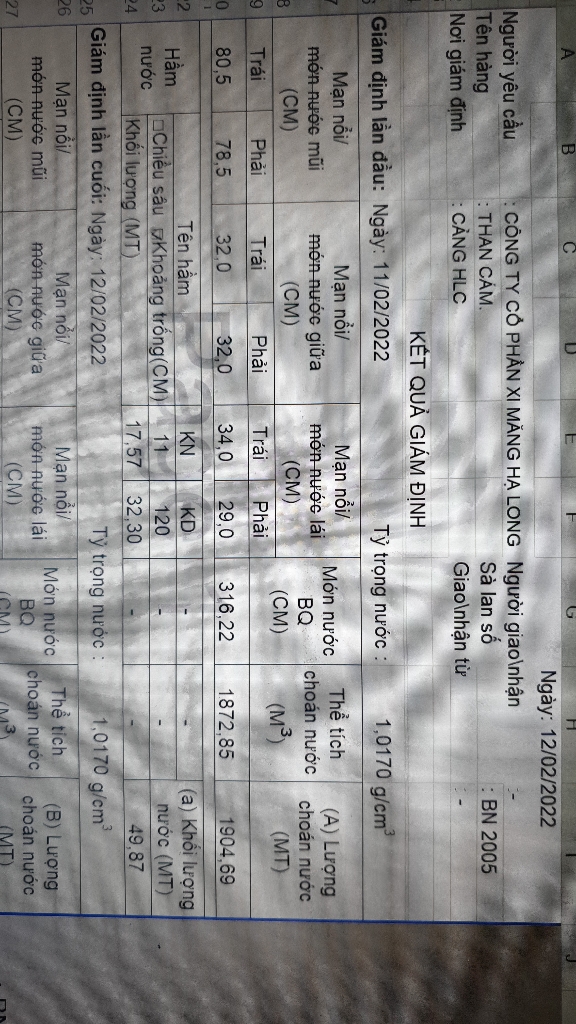 A B C D E F G H I J
Ngày: 12/02/2022
Người yêu cầu : CÔNG TY CỔ PHẦN XI MĂNG HẠ LONG Người giao\nhận :-
Tên hàng : THAN CÁM. Sà lan số : BN 2005
Nơi giám định : CẢNG HLC Giao\nhận từ : -
KẾT QUẢ GIÁM ĐỊNH
Giám định lần đầu: Ngày: 11/02/2022 Tỷ trọng nước : 1,0170 g/cm³
7 Mạn nổi/ Mạn nổi/ Mạn nổi/ Món nước Thể tích (A) Lượng
món nước mũi món nước giữa món nước lái BQ choán nước choán nước
8 (CM) (CM) (CM) (CM) (M³) (MT)
9 Trái Phải Trái Phải Trái Phải
0 80,5 78,5 32,0 32,0 34,0 29,0 316,22 1872,85 1904,69
22 Hầm nước Tên hầm KN KD - - (a) Khối lượng nước (MT)
23 □Chiều sâu ☑Khoảng trống(CM) 11 120 - -
24 Khối lượng (MT) 17,57 32,30 - - 49,87
25 Giám định lần cuối: Ngày: 12/02/2022 Tỷ trọng nước : 1,0170 g/cm³
26 Mạn nổi/ Mạn nổi/ Mạn nổi/ Món nước Thể tích (B) Lượng
món nước mũi món nước giữa món nước lái BQ choán nước choán nước
27 (CM) (CM) (CM) (CM) (M³) (MT)